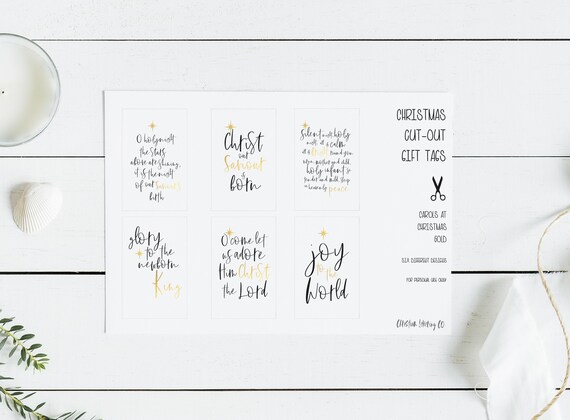 O holy night
the stars
above are shining,
it is the night
of our Saviour's
birth
Christ
our
Saviour
is
born
silent night, holy
night, all is calm
all is bright
holy infant so
tender and mild, sleep
in heavenly peace
glory
to the
newborn
King
O come let
us adore
Him Christ
the Lord
joy
to the
World
CHRISTMAS
CUT-OUT
GIFT TAGS
CAROLS AT
CHRISTMAS
GOLD
SIX DIFFERENT DESIGNS
FOR PERSONAL USE ONLY